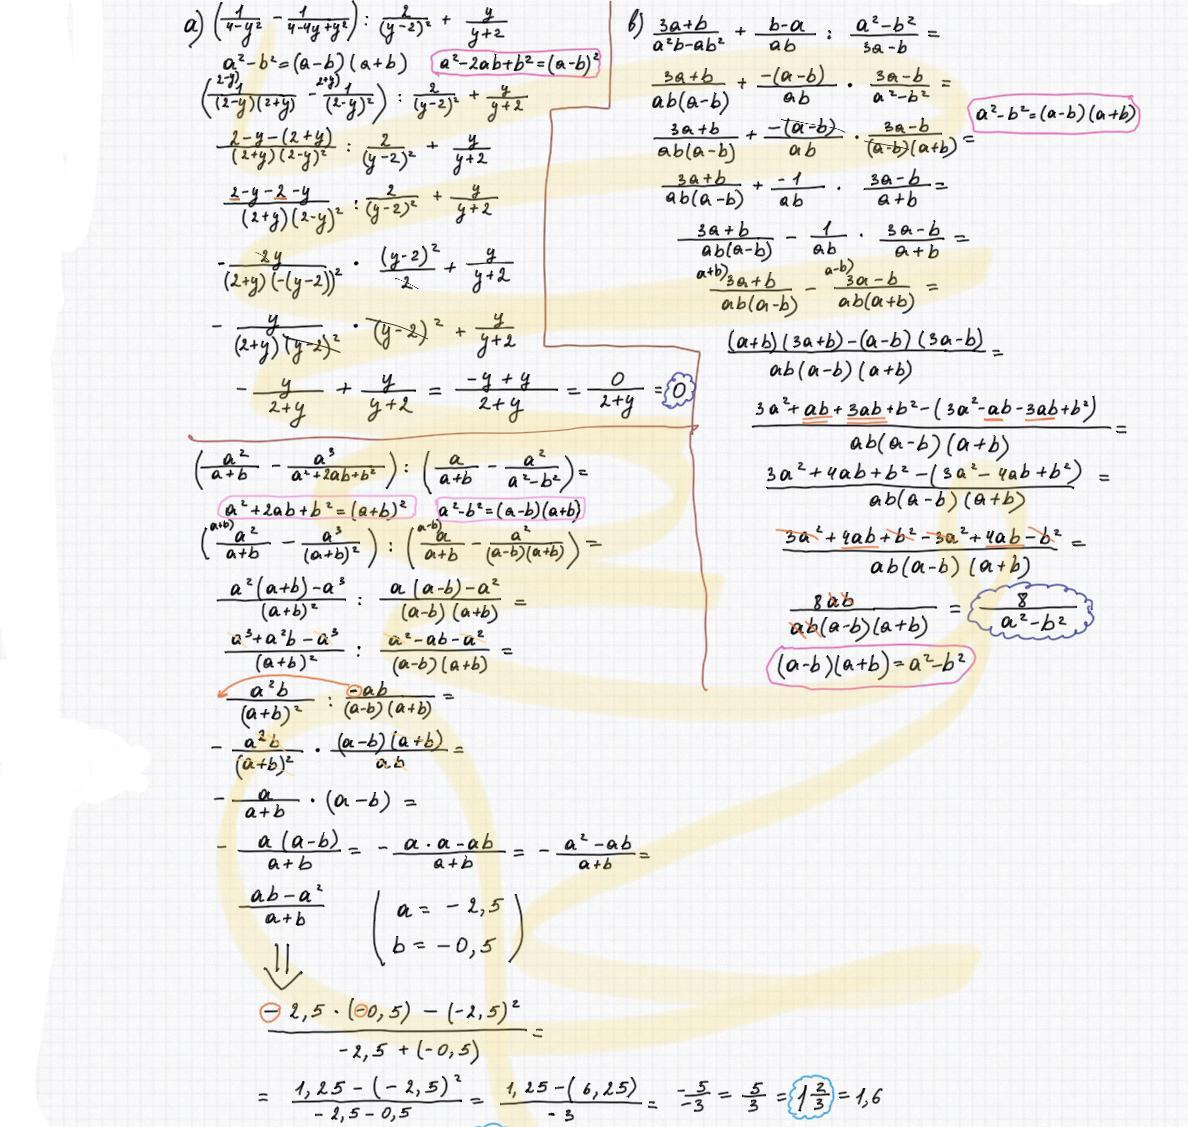 а) (1/(4-y²) - 1/(4-4y+y²)) : 2/(y-2)² + y/(y+2)
a²-b²=(a-b)(a+b)   a²-2ab+b²=(a-b)²
((2-y) 1/((2-y)(2+y)) - (2+y) 1/(2-y)²) : 2/(y-2)² + y/(y+2)
(2-y-(2+y))/((2+y)(2-y)²) : 2/(y-2)² + y/(y+2)
(2-y-2-y)/((2+y)(2-y)²) : 2/(y-2)² + y/(y+2)
- 2y/((2+y)(-(y-2))²) · (y-2)²/2 + y/(y+2)
- y/((2+y)(y-2)²) · (y-2)² + y/(y+2)
- y/(2+y) + y/(y+2) = (-y+y)/(2+y) = 0/(2+y) = 0
(a²/(a+b) - a³/(a²+2ab+b²)) : (a/(a+b) - a²/(a²-b²)) =
a²+2ab+b²=(a+b)²   a²-b²=(a-b)(a+b)
((a+b) a²/(a+b) - a³/(a+b)²) : ((a-b) a/(a+b) - a²/((a-b)(a+b))) =
(a²(a+b)-a³)/(a+b)² : (a(a-b)-a²)/((a-b)(a+b)) =
(a³+a²b-a³)/(a+b)² : (a²-ab-a²)/((a-b)(a+b)) =
a²b/(a+b)² : -ab/((a-b)(a+b)) =
- a²b/(a+b)² · (a-b)(a+b)/ab =
- a/(a+b) · (a-b) =
- a(a-b)/(a+b) = - (a·a-ab)/(a+b) = - (a²-ab)/(a+b) =
(ab-a²)/(a+b)   (a = -2,5
b = -0,5)
⇓
(-2,5·(-0,5)-(-2,5)²)/(-2,5+(-0,5)) =
= (1,25-(-2,5)²)/(-2,5-0,5) = (1,25-(6,25))/-3 = -5/-3 = 5/3 = 1 2/3 = 1,6
в) (3a+b)/(a²b-ab²) + (b-a)/ab : (a²-b²)/(3a-b) =
(3a+b)/(ab(a-b)) + -(a-b)/ab · (3a-b)/(a²-b²) =
a²-b²=(a-b)(a+b)
(3a+b)/(ab(a-b)) + -(a-b)/ab · (3a-b)/((a-b)(a+b)) =
(3a+b)/(ab(a-b)) + -1/ab · (3a-b)/(a+b) =
(3a+b)/(ab(a-b)) - 1/ab · (3a-b)/(a+b) =
a+b) (3a+b)/(ab(a-b)) - a-b) (3a-b)/(ab(a+b)) =
((a+b)(3a+b)-(a-b)(3a-b))/(ab(a-b)(a+b)) =
(3a²+ab+3ab+b²-(3a²-ab-3ab+b²))/(ab(a-b)(a+b)) =
(3a²+4ab+b²-(3a²-4ab+b²))/(ab(a-b)(a+b)) =
(3a²+4ab+b²-3a²+4ab-b²)/(ab(a-b)(a+b)) =
8ab/(ab(a-b)(a+b)) = 8/(a²-b²)
(a-b)(a+b)=a²-b²